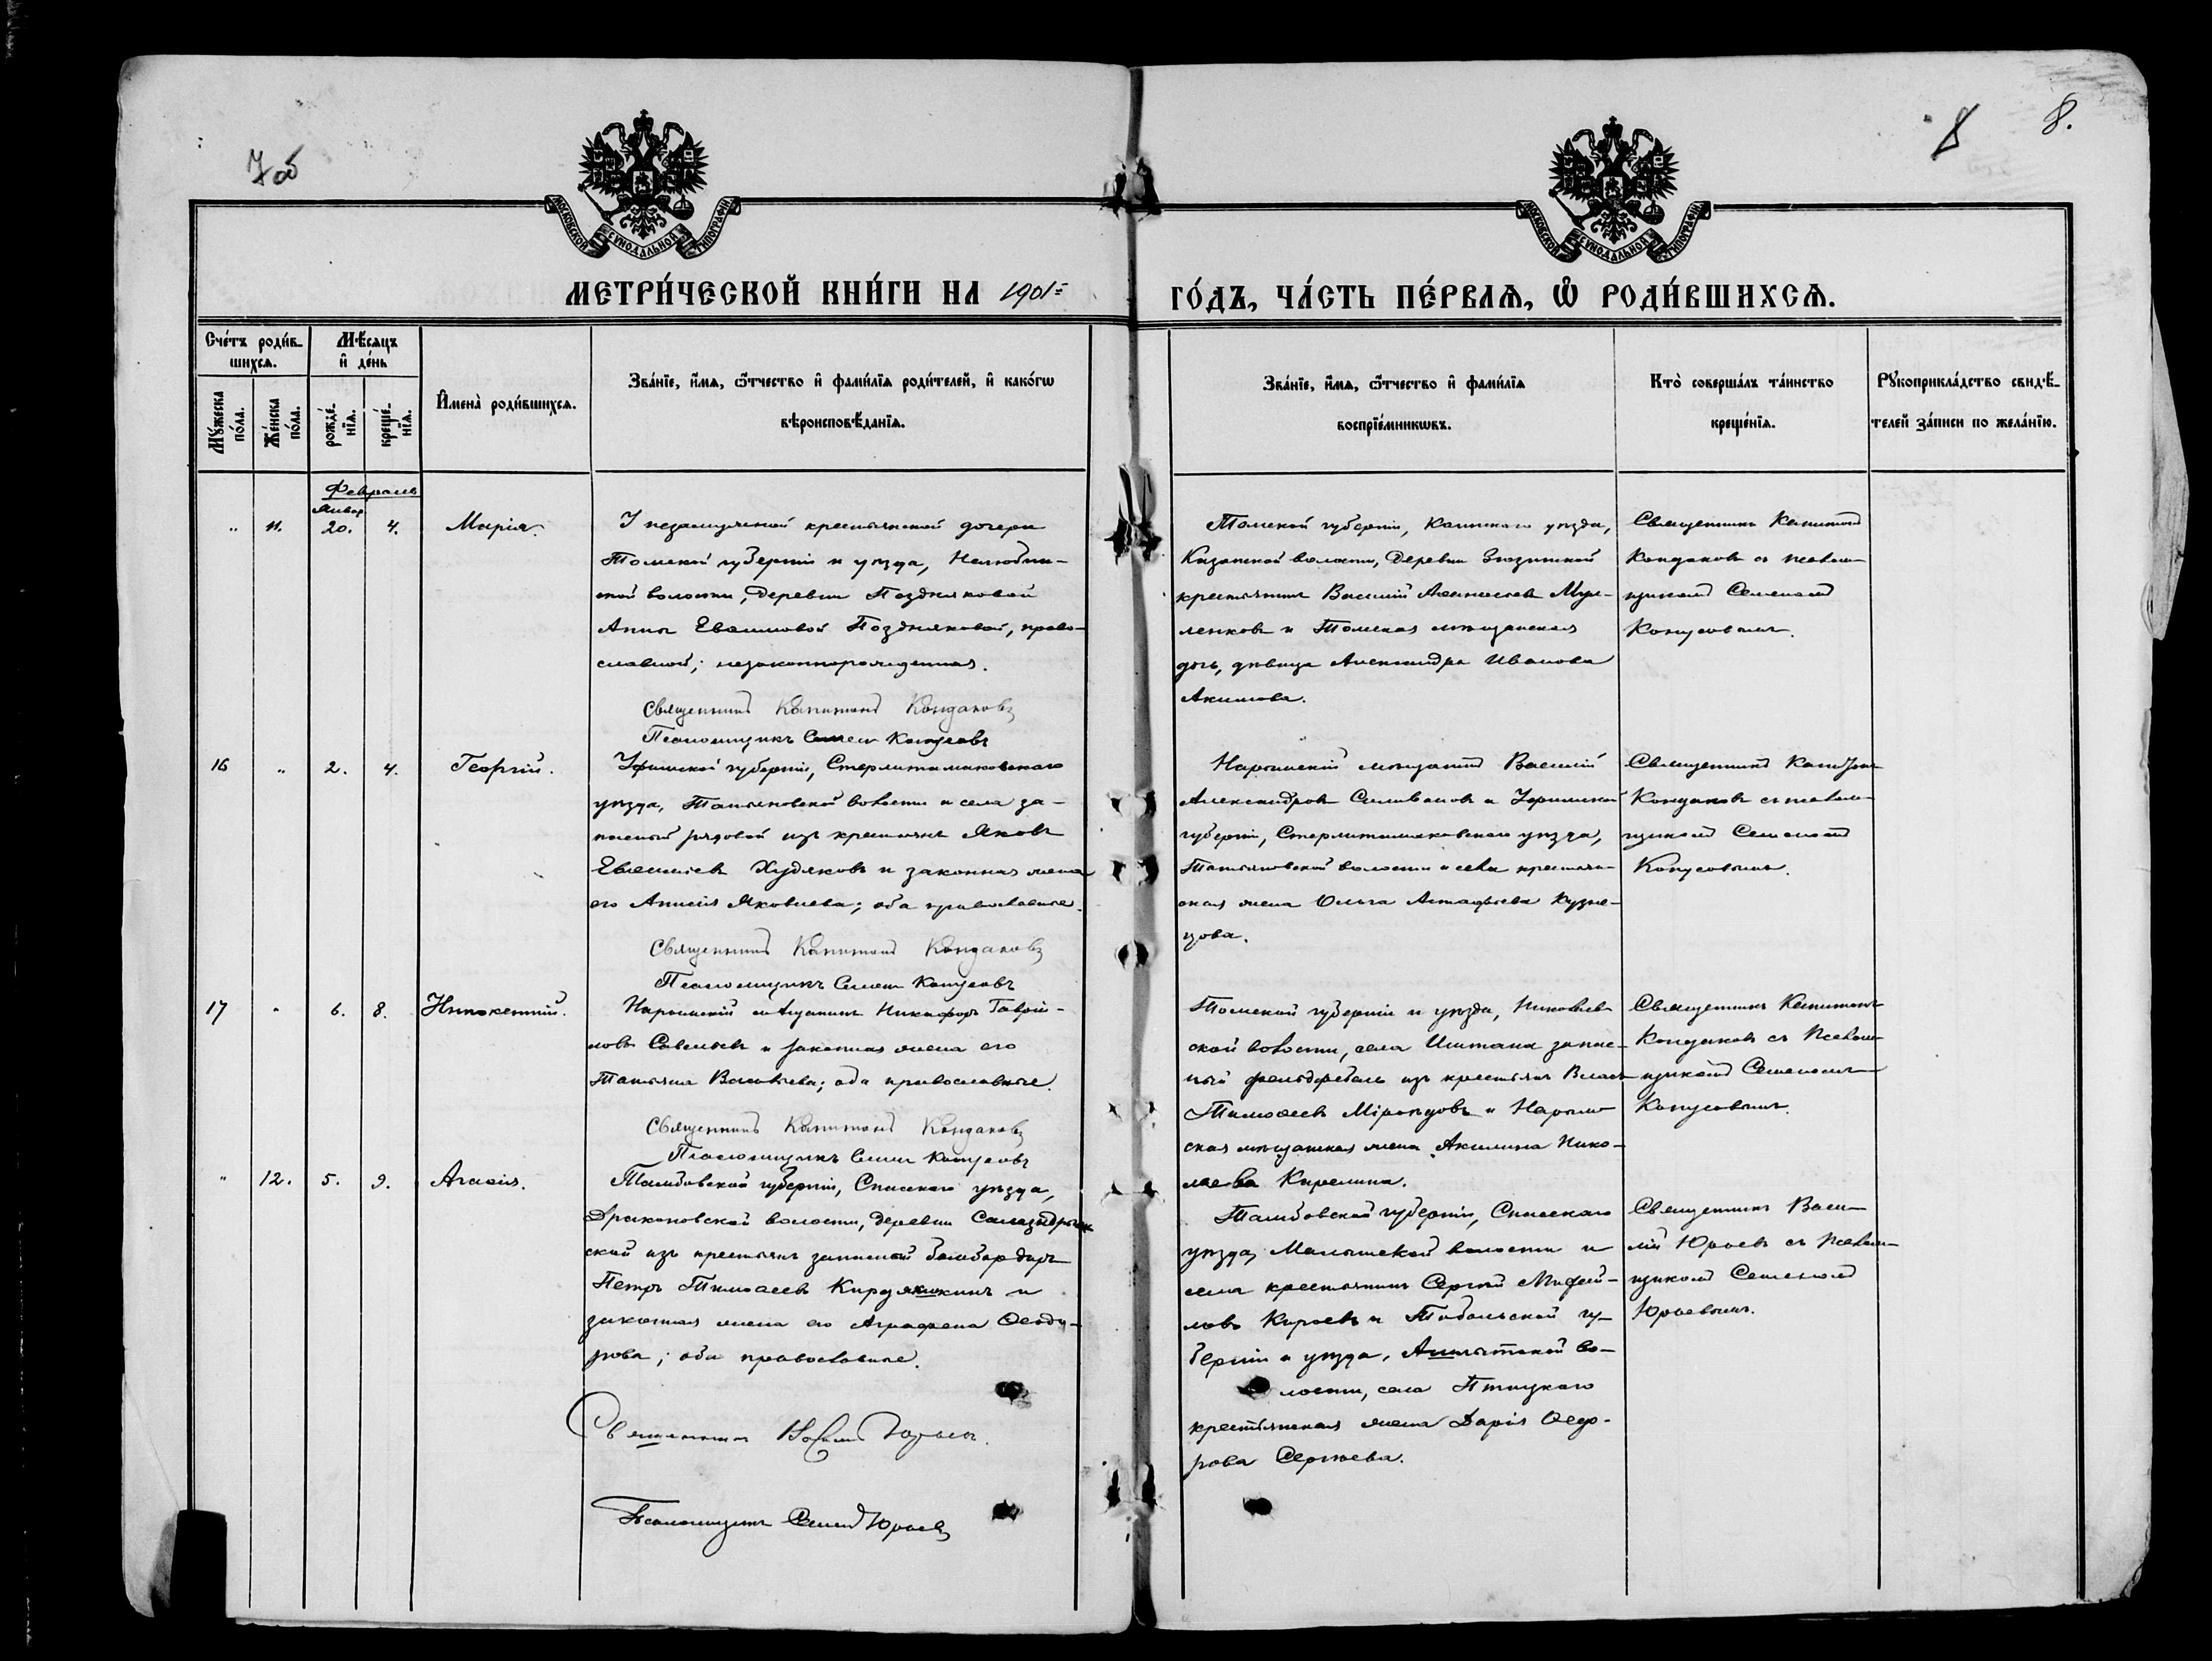 7 об
8 8.
МОСКОВСКОЙ СѴНОДАЛЬНОЙ ТИПОГРАФІИ
МОСКОВСКОЙ СѴНОДАЛЬНОЙ ТИПОГРАФІИ
МЕТРИ́ЧЕСКОЙ КНИ́ГИ НА 1901 ГО́ДЪ, ЧА́СТЬ ПЕ́РВАѦ, Ѽ РОДИ́ВШИХСѦ.
Сче́тъ роди́вшихсѧ.
Мѣ́сѧцъ и҆ де́нь
Мꙋ́жеска по́ла.
Же́нска по́ла.
рожде́нїѧ.
креще́нїѧ.
И҆мена̀ роди́вшихсѧ.
Зва́нїе, и҆́мѧ, ѻ҆́тчество и҆ фами́лїѧ роди́телей, и҆ како́гѡ
вѣроисповѣ́данїѧ.
Зва́нїе, и҆́мѧ, ѻ҆́тчество и҆ фами́лїѧ
воспрїе́мникѡвъ.
Кто̀ соверша́лъ та́инство
креще́нїѧ.
Рꙋкоприкла́дство свидѣ́-
телей за́писи по жела́нїю.
Февраль
Январ.
„ 11. 20. 4. Марія.
У незамужней крестьянской дочери
Томской губерніи и уѣзда, Нелюбин-
ской волости, деревни Поздняковой
Анны Евѳимовой Поздняковой, право-
славной; незаконнорожденная.
Священникъ Капитонъ Кондаковъ
Псаломщикъ Семен
Томской губерніи, Каинскаго уѣзда,
Казанской волости, деревни Зюзинской
крестьянинъ Василій Аѳанасьевъ
и Томская мѣщанская
дочь, дѣвица Александра Иванова
Акимова.
Священникъ Капитонъ
Кондаковъ съ псалом-
щикомъ Семеномъ
16 „ 2. 4. Георгій.
Уфимской губерніи, Стерлитамаковскаго
уѣзда, Татьяновской волости и села за-
пасный рядовой изъ крестьянъ Яковъ
Евѳиміевъ Худяковъ и законная жена
его Анисія Яковлева; оба православные.
Священникъ Капитонъ Кондаковъ
Псаломщикъ Семен
Нарымскій мѣщанинъ Василій
Александровъ Селивановъ и Уфимской
губерніи, Стерлитамаковскаго уѣзда,
Татьяновской волости и села крестьян-
ская жена Ольга Астафьева Кузне-
цова.
Священникъ Капитонъ
Кондаковъ съ псалом-
щикомъ Семеномъ
17 „ 6. 8. Иннокентій.
Нарымскій мѣщанинъ Никифоръ Гаврій-
ловъ Савельевъ и законная жена его
Татьяна Васильева; оба православные.
Священникъ Капитонъ Кондаковъ
Псаломщикъ Семен
Томской губерніи и уѣзда, Николаев-
ской волости, села Иштана запас-
ный фельдфебель изъ крестьянъ
Тимоѳеевъ Міронцовъ и Нарым-
ская мѣщанская жена Акилина Нико-
лаева Карелина.
Священникъ Капитонъ
Кондаковъ съ псалом-
щикомъ Семеномъ
„ 12. 5. 9. Агаѳія.
Тамбовской губерніи, Спасскаго уѣзда,
волости, деревни
ской изъ крестьянъ запасный бомбардиръ
Петръ Тимоѳеевъ и
законная жена его Аграфена Ѳеодо-
рова; оба православные.
Священникъ Василій Юрьевъ.
Псаломщикъ Семенъ Юрьевъ
Тамбовской губерніи, Спасскаго
уѣзда, волости и
села крестьянинъ Сергѣй
Киреевъ и Тобольской гу-
берніи и уѣзда, Ашлыкской во-
лости, села Птицкаго
крестьянская жена Дарія Ѳедо-
рова Сергѣева.
Священникъ Васи-
лій Юрьевъ съ псалом-
щикомъ Семеномъ
Юрьевымъ.